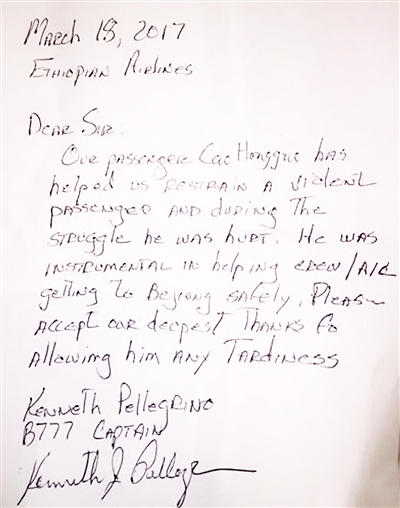 March 18, 2017
Ethiopian Airlines
Dear Sir:
Our passenger Cao Hongguo has
helped us restrain a violent
passenger and during the
struggle he was hurt. He was
instrumental in helping crew/A/C
getting to Beijing safely. Please
accept our deepest thanks fo
allowing him any tardiness
Kenneth Pellegrino
B777 Captain
Kenneth J Pelleg